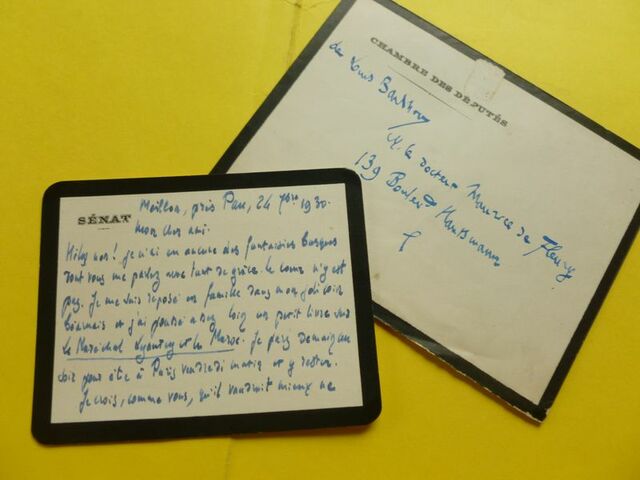 SÉNAT
Meillon, près Pau, 24 7bre 1930.
Mon cher ami.
Hélas non! je n'ai vu aucune des fantaisies basques
dont vous me parlez avec tant de grâce. Le cœur n'y est
pas. Je me suis reposé en famille dans mon joli coin
béarnais et j'ai un petit livre sur
le Maréchal Lyautey et le Maroc. Je pars demain
soir pour être à Paris vendredi matin et y rester.
Je crois, comme vous, qu'il vaudrait mieux ne
CHAMBRE DES DÉPUTÉS
de Louis Barthou
M. le docteur Maurice de Fleury
139 Boulevd Haussmann